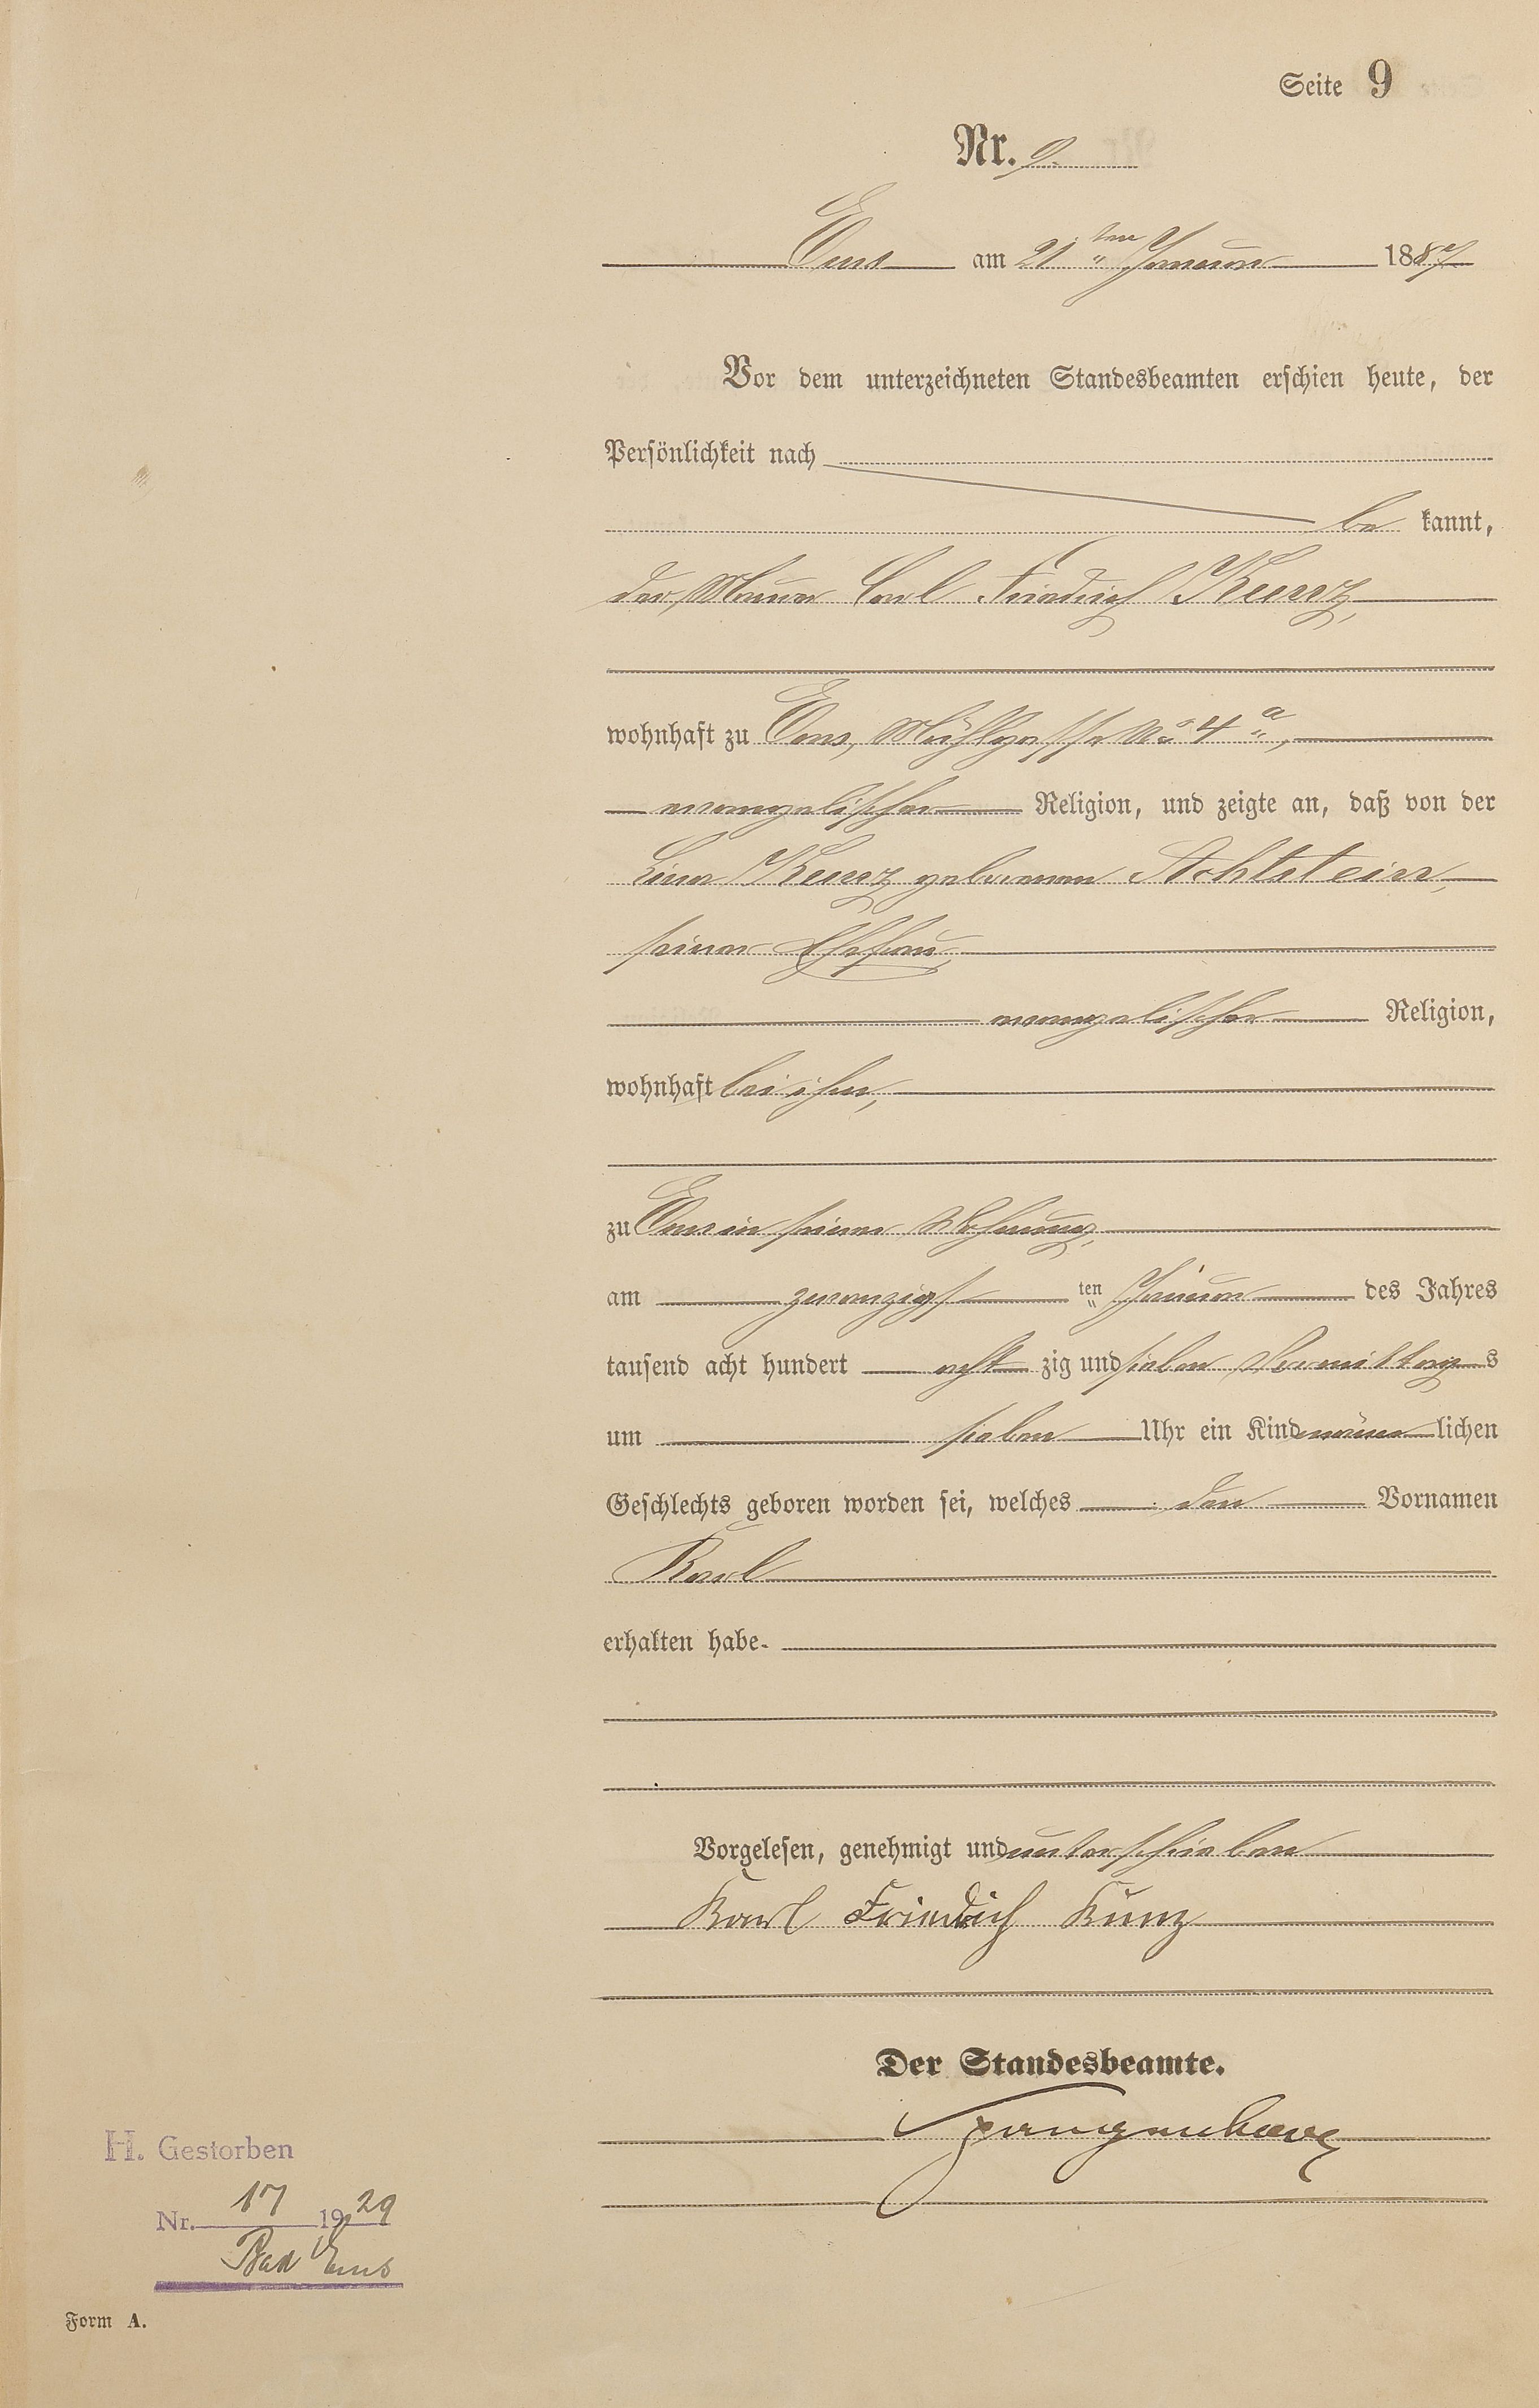 Seite 9
Nr. 9.
Ems am 21ten Januar 1887
Vor dem unterzeichneten Standesbeamten erschien heute, der
Persönlichkeit nach
be kannt,
der Maurer Carl Friedrich Kunz,
wohnhaft zu Ems, Mühlgasse No 4a,
evangelischer Religion, und zeigte an, daß von der
Lina Kunz geborenen Achtstein,
seiner Ehefrau,
evangelischer Religion,
wohnhaft bei ihm,
zu Ems in seiner Wohnung,
am zwanzigsten Januar des Jahres
tausend acht hundert acht zig und sieben Vormittags
um sieben Uhr ein Kind männlichen
Geschlechts geboren worden sei, welches den Vornamen
Karl
erhalten habe.
Vorgelesen, genehmigt und unterschrieben
Karl Friedrich Kunz
Der Standesbeamte.
Spangenberg
H. Gestorben
Nr. 17 1929
Bad Ems
Form A.